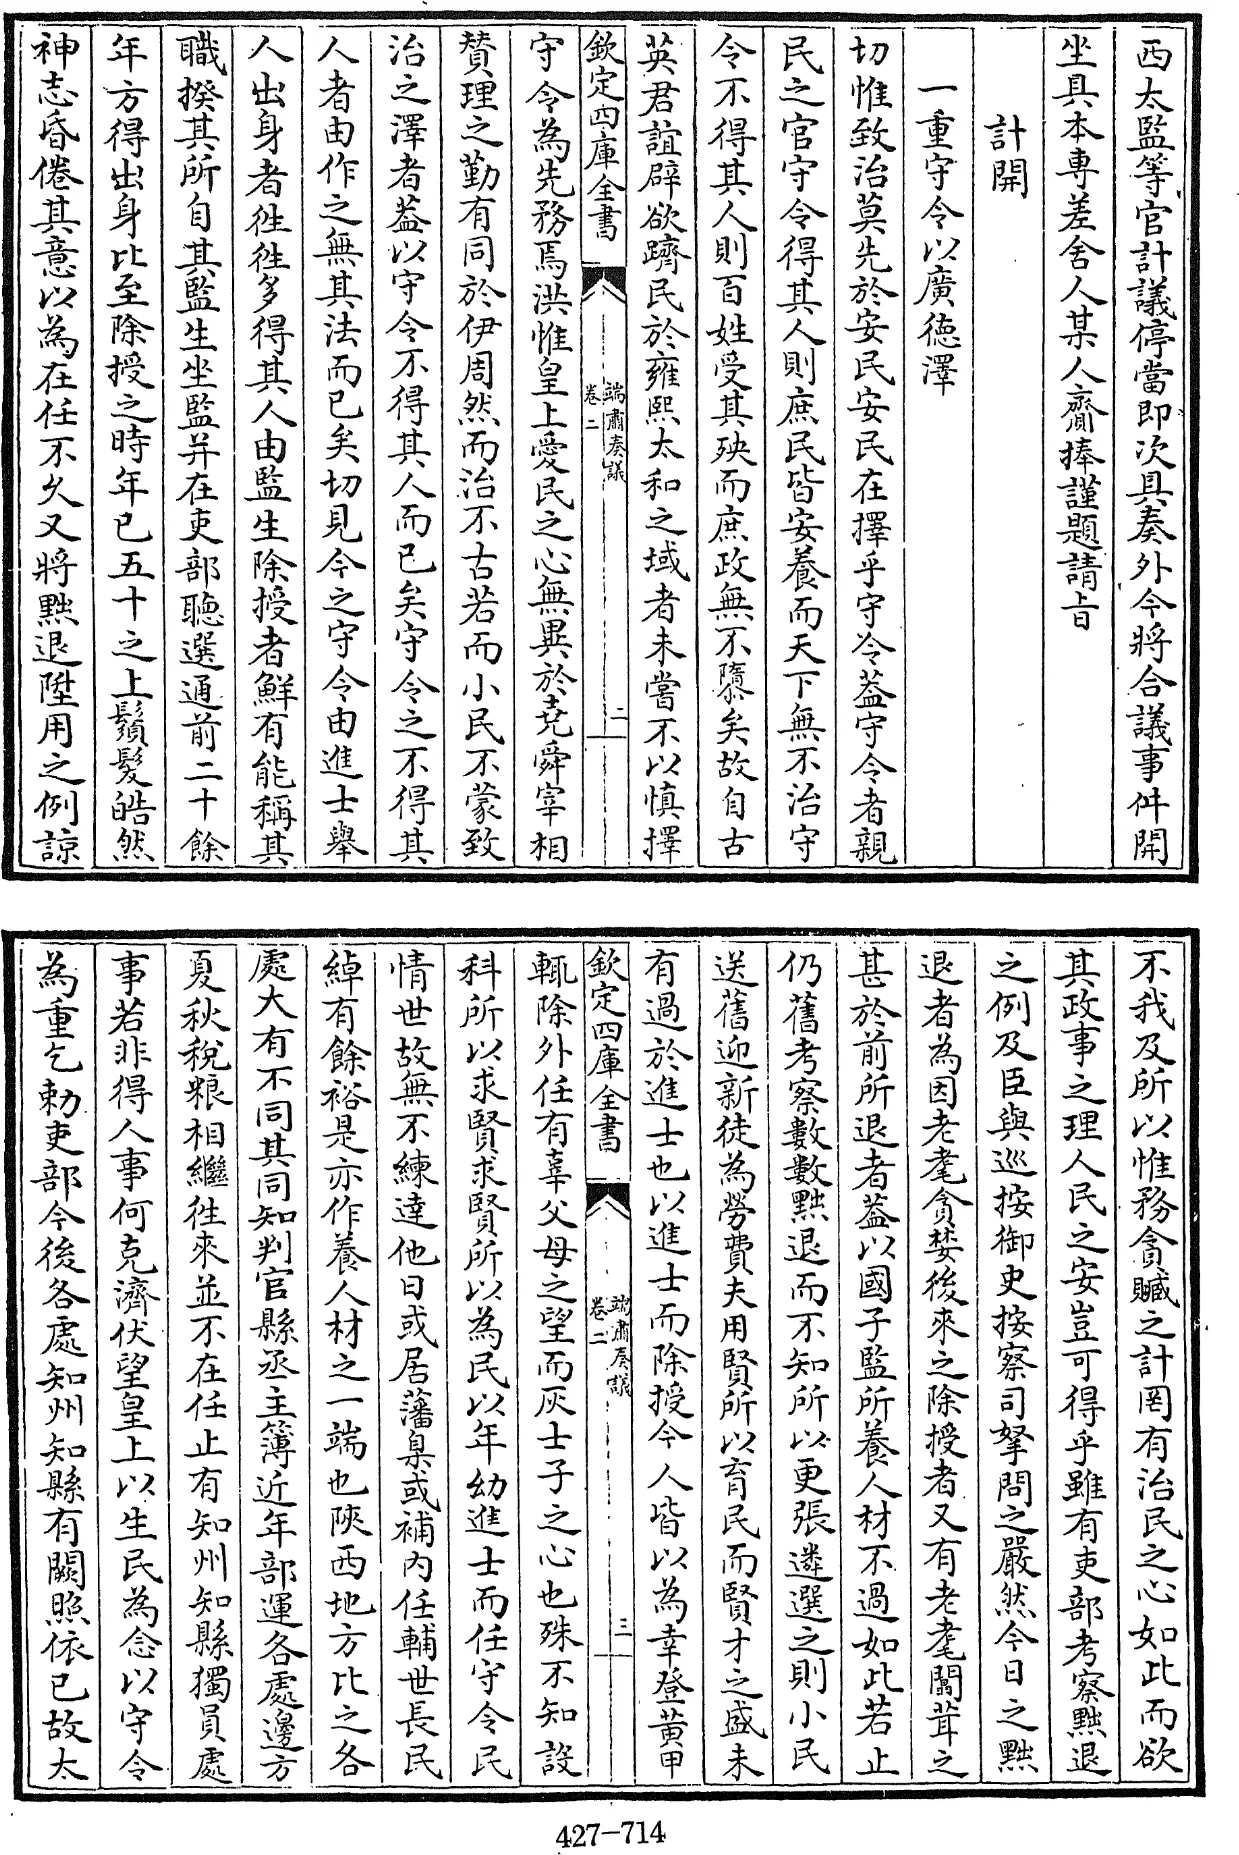 西太監等官計議停當即次具奏外今將合議事件開
坐具本專差舍人某人齎捧謹題請旨
計開
一重守令以廣德澤
切惟致治莫先於安民安民在擇乎守令葢守令者親
民之官守令得其人則庶民皆安養而天下無不治守
令不得其人則百姓受其殃而庶政無不隳矣故自古
英君誼辟欲躋民於雍熙太和之域者未嘗不以慎擇
欽定四庫全書
端肅奏議
卷二
二
守令為先務焉洪惟皇上愛民之心無異於堯舜宰相
賛理之勤有同於伊周然而治不古若而小民不蒙致
治之澤者葢以守令不得其人而已矣守令之不得其
人者由作之無其法而已矣切見今之守令由進士舉
人出身者徃徃多得其人由監生除授者鮮有能稱其
職揆其所自其監生坐監并在吏部聽選通前二十餘
年方得出身比至除授之時年已五十之上鬚髮皓然
神志昏倦其意以為在任不久又將黜退陞用之例諒
不我及所以惟務貪贓之計罔有治民之心如此而欲
其政事之理人民之安豈可得乎雖有吏部考察黜退
之例及臣與巡按御史按察司拏問之嚴然今日之黜
退者為因老耄貪婪後來之除授者又有老耄闒茸之
甚於前所退者葢以國子監所養人材不過如此若止
仍舊考察數數黜退而不知所以更張遴選之則小民
送舊迎新徒為勞費夫用賢所以育民而賢才之盛未
有過於進士也以進士而除授今人皆以為幸登黄甲
欽定四庫全書
端肅奏議
卷二
三
輒除外任有辜父母之望而灰士子之心也殊不知設
科所以求賢求賢所以為民以年幼進士而任守令民
情世故無不練達他日或居藩臬或補内任輔世長民
綽有餘裕是亦作養人材之一端也陝西地方比之各
處大有不同其同知判官縣丞主簿近年部運各處邊方
夏秋稅粮相繼徃來並不在任止有知州知縣獨員處
事若非得人事何克濟伏望皇上以生民為念以守令
為重乞勅吏部今後各處知州知縣有闕照依已故太
427-714